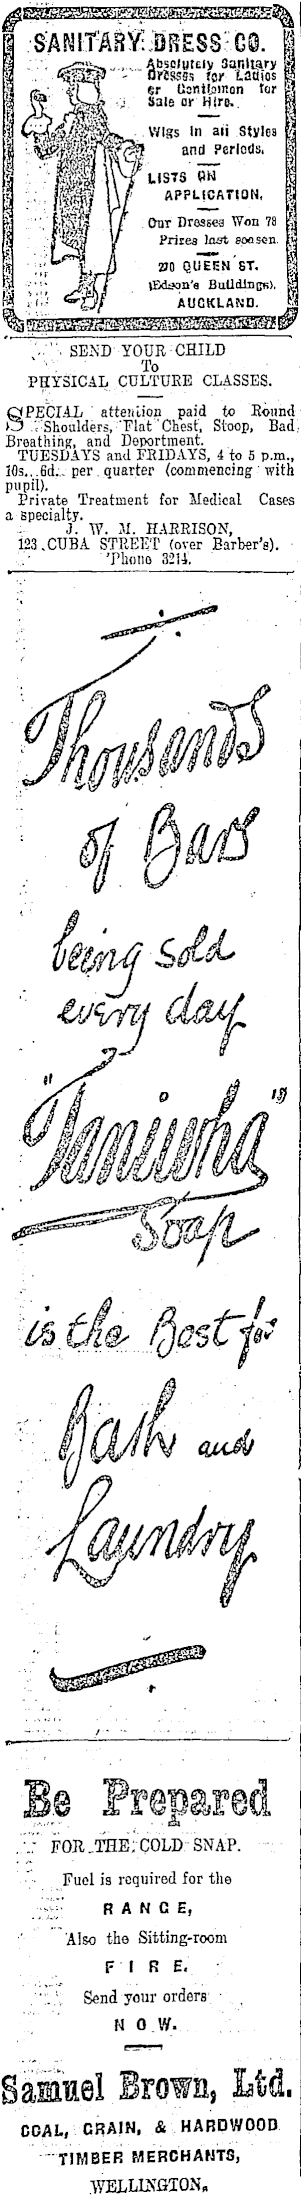 SANITARY DRESS CO.
Absolutely Sanitary
Dresses for Ladies
or Gentlemen for
Sale or Hire.
Wigs in all Styles
and Periods.
LISTS ON
APPLICATION.
Our Dresses Won 78
Prizes last season.
270 QUEEN ST.
(Edson's Buildings),
AUCKLAND.
SEND YOUR CHILD
To
PHYSICAL CULTURE CLASSES.
SPECIAL attention paid to Round
Shoulders, Flat Chest, Stoop, Bad
Breathing, and Deportment.
TUESDAYS and FRIDAYS, 4 to 5 p.m.,
10s. 6d. per quarter (commencing with
pupil).
Private Treatment for Medical Cases
a specialty.
J. W. M. HARRISON,
123 CUBA STREET (over Barber's).
'Phone 3214.
Thousands
of Bars
being sold
every day
"Taniwha"
Soap
is the Best for
Bath and
Laundry
Be Prepared
FOR THE COLD SNAP.
Fuel is required for the
RANGE,
Also the Sitting-room
FIRE.
Send your orders
NOW.
Samuel Brown, Ltd.
COAL, GRAIN, & HARDWOOD
TIMBER MERCHANTS,
WELLINGTON.